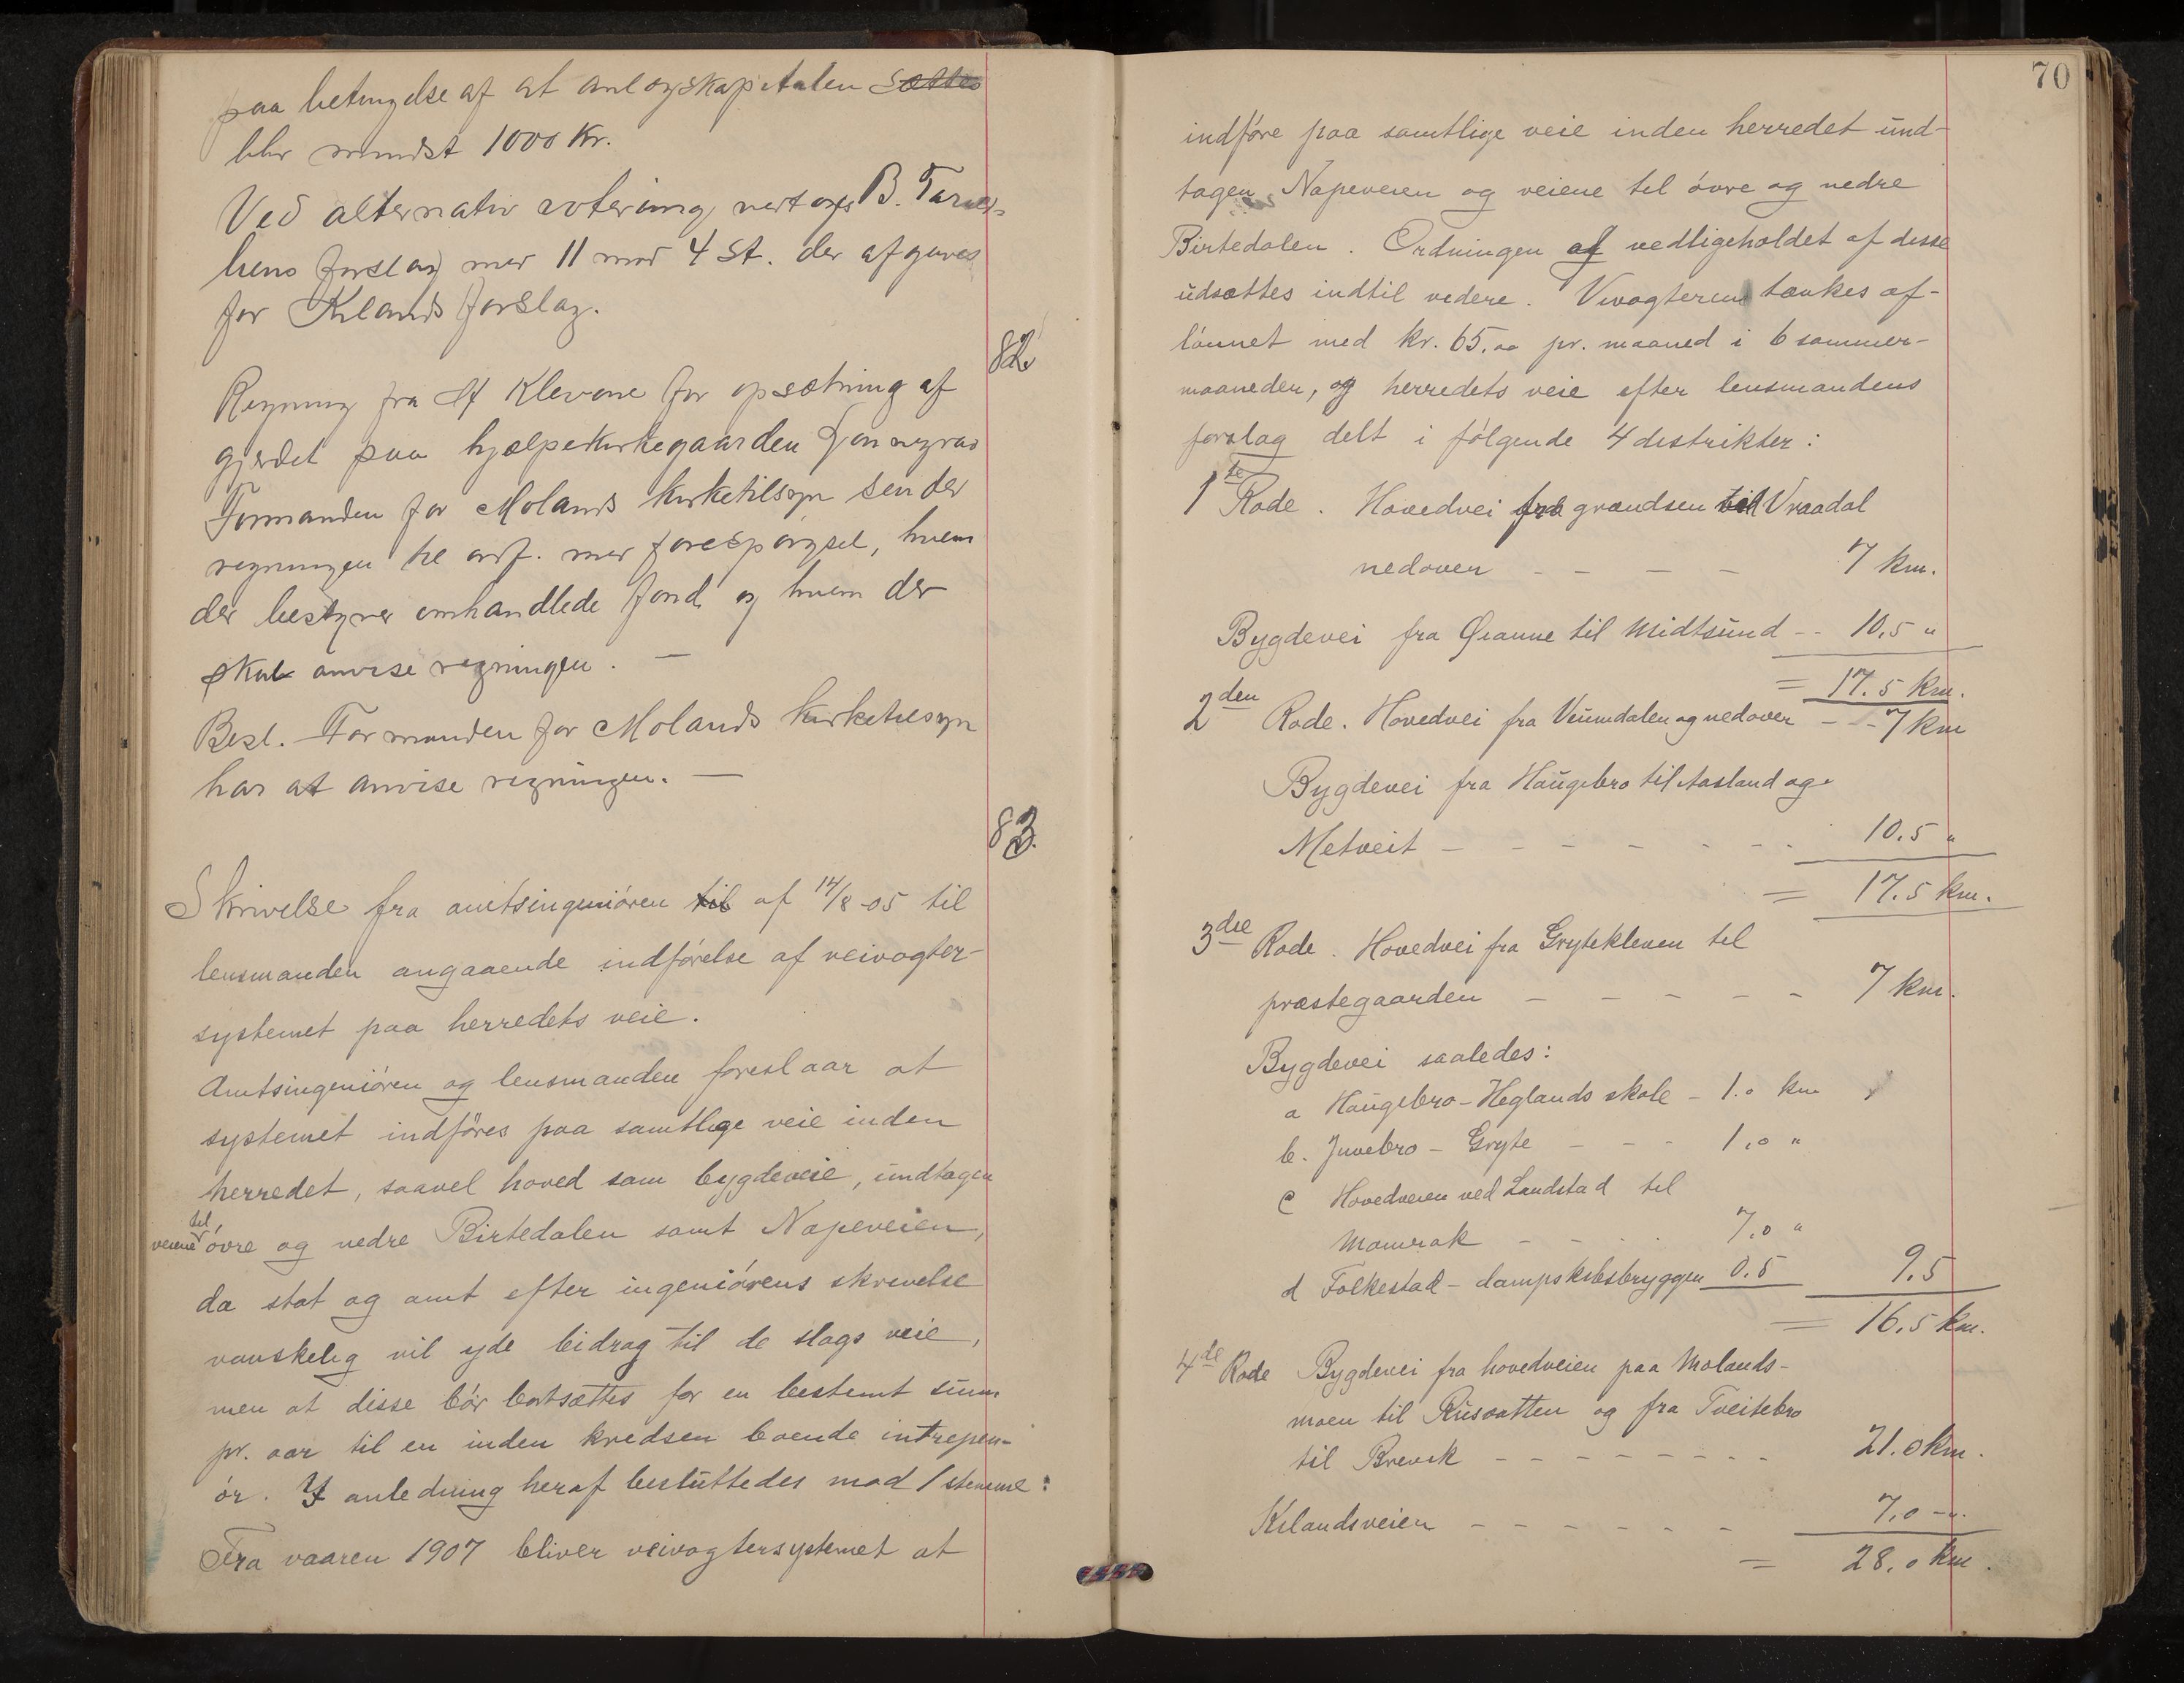 paa betingelse af at anlægskapitalen sættes
blir mindst 1000 Kr.
Ved alternativ votering vertoges B. Tarald-
liens forslag med 11 mod 4 st. der afgaves
for Kilands forslag.
82.
Regning fra Klevone for opsætning af
gjerdet paa hjælpekirkegaarden
Formanden for Molands kirketilsyn sender
regningen til ordf. med forespørgsel, hvem
der bestyrer omhandlede fond og hvem der
skal anvise regningen. —
Besl. Formanden for Molands kirketilsyn
har at anvise regningen. —
83.
Skrivelse fra amtsingeniøren til af 14/8-05 til
lensmanden angaaende indførelse af veivogter-
systemet paa herredets veie.
Amtsingeniøren og lensmanden foreslaar at
systemet indføres paa samtlige veie inden
herredet, saavel hoved som bygdeveie, undtagen
veiene til øvre og nedre Birtedalen samt Napeveien,
da stat og amt efter ingeniørens skrivelse
vanskelig vil yde bidrag til de slags veie,
men at disse bør bortsættes for en bestemt sum
pr. aar til en inden kredsen boende intrepen-
ør. I anledning heraf besluttedes mod 1 stemme:
Fra vaaren 1907 bliver veivogtersystemet at
70
indføre paa samtlige veie inden herredet und-
tagen Napeveien og veiene til øvre og nedre
Birtedalen. Ordningen af vedligeholdet af disse
udsættes indtil videre. Vivogterene tænkes af-
lønnet med kr. 65.00 pr. maaned i 6 sommer-
maaneder, og herredets veie efter lensmandens
forslag delt i følgende 4 distrikter:
1ste Rode. Hovedvei fra grændsen til Vraadal
nedover - - - - 7 km.
Bygdevei fra Græanne til Midtsund -- 10,5 "
= 17.5 km.
2den Rode. Hovedvei fra Veumdalen og nedover - - 7 km
Bygdevei fra Haugebro til Aasland og
Metveit - - - - - - - 10.5 "
= 17.5 km.
3die Rode. Hovedvei fra Grytekleven til
præstegaarden - - - - - 7 km.
Bygdevei saaledes:
a Haugebro - Heglands skole - 1.0 km
b. Juvebro - Gryte - - - 1,0 "
c Hovedveien ved Landstad til
Momrak - - - 7,0 "
d Folkestad - dampskibsbryggen 0.5 9.5
= 16,5 km.
4de Rode Bygdevei fra hovedveien paa Molands-
moen til Rusvatten og fra Tveitebro
til Brevik - - - - - - - - 21.0 km.
Kilandsveien - - - - - - 7,0 -"-
= 28,0 km.